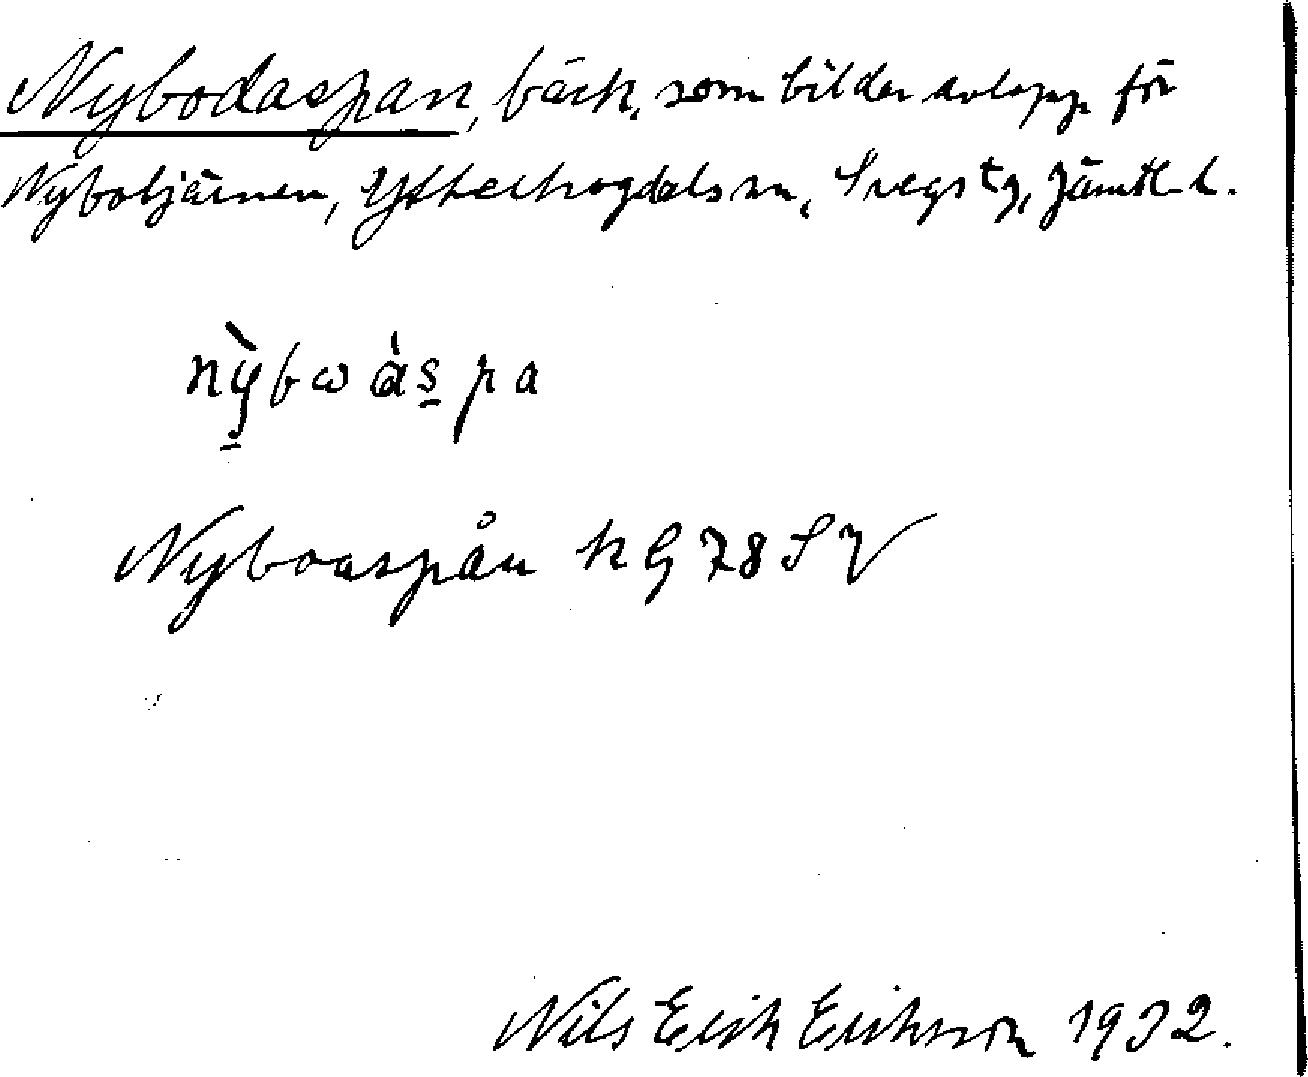 Nybodaspan, bäck, som bildar avlopp för
Nybotjärnen, Ytterhogdals sn, Svegs tg, Jämtl. l.
nỳbωàspa
Nyboaspån kG 78 SV
Nils Erik Erikson 1932.